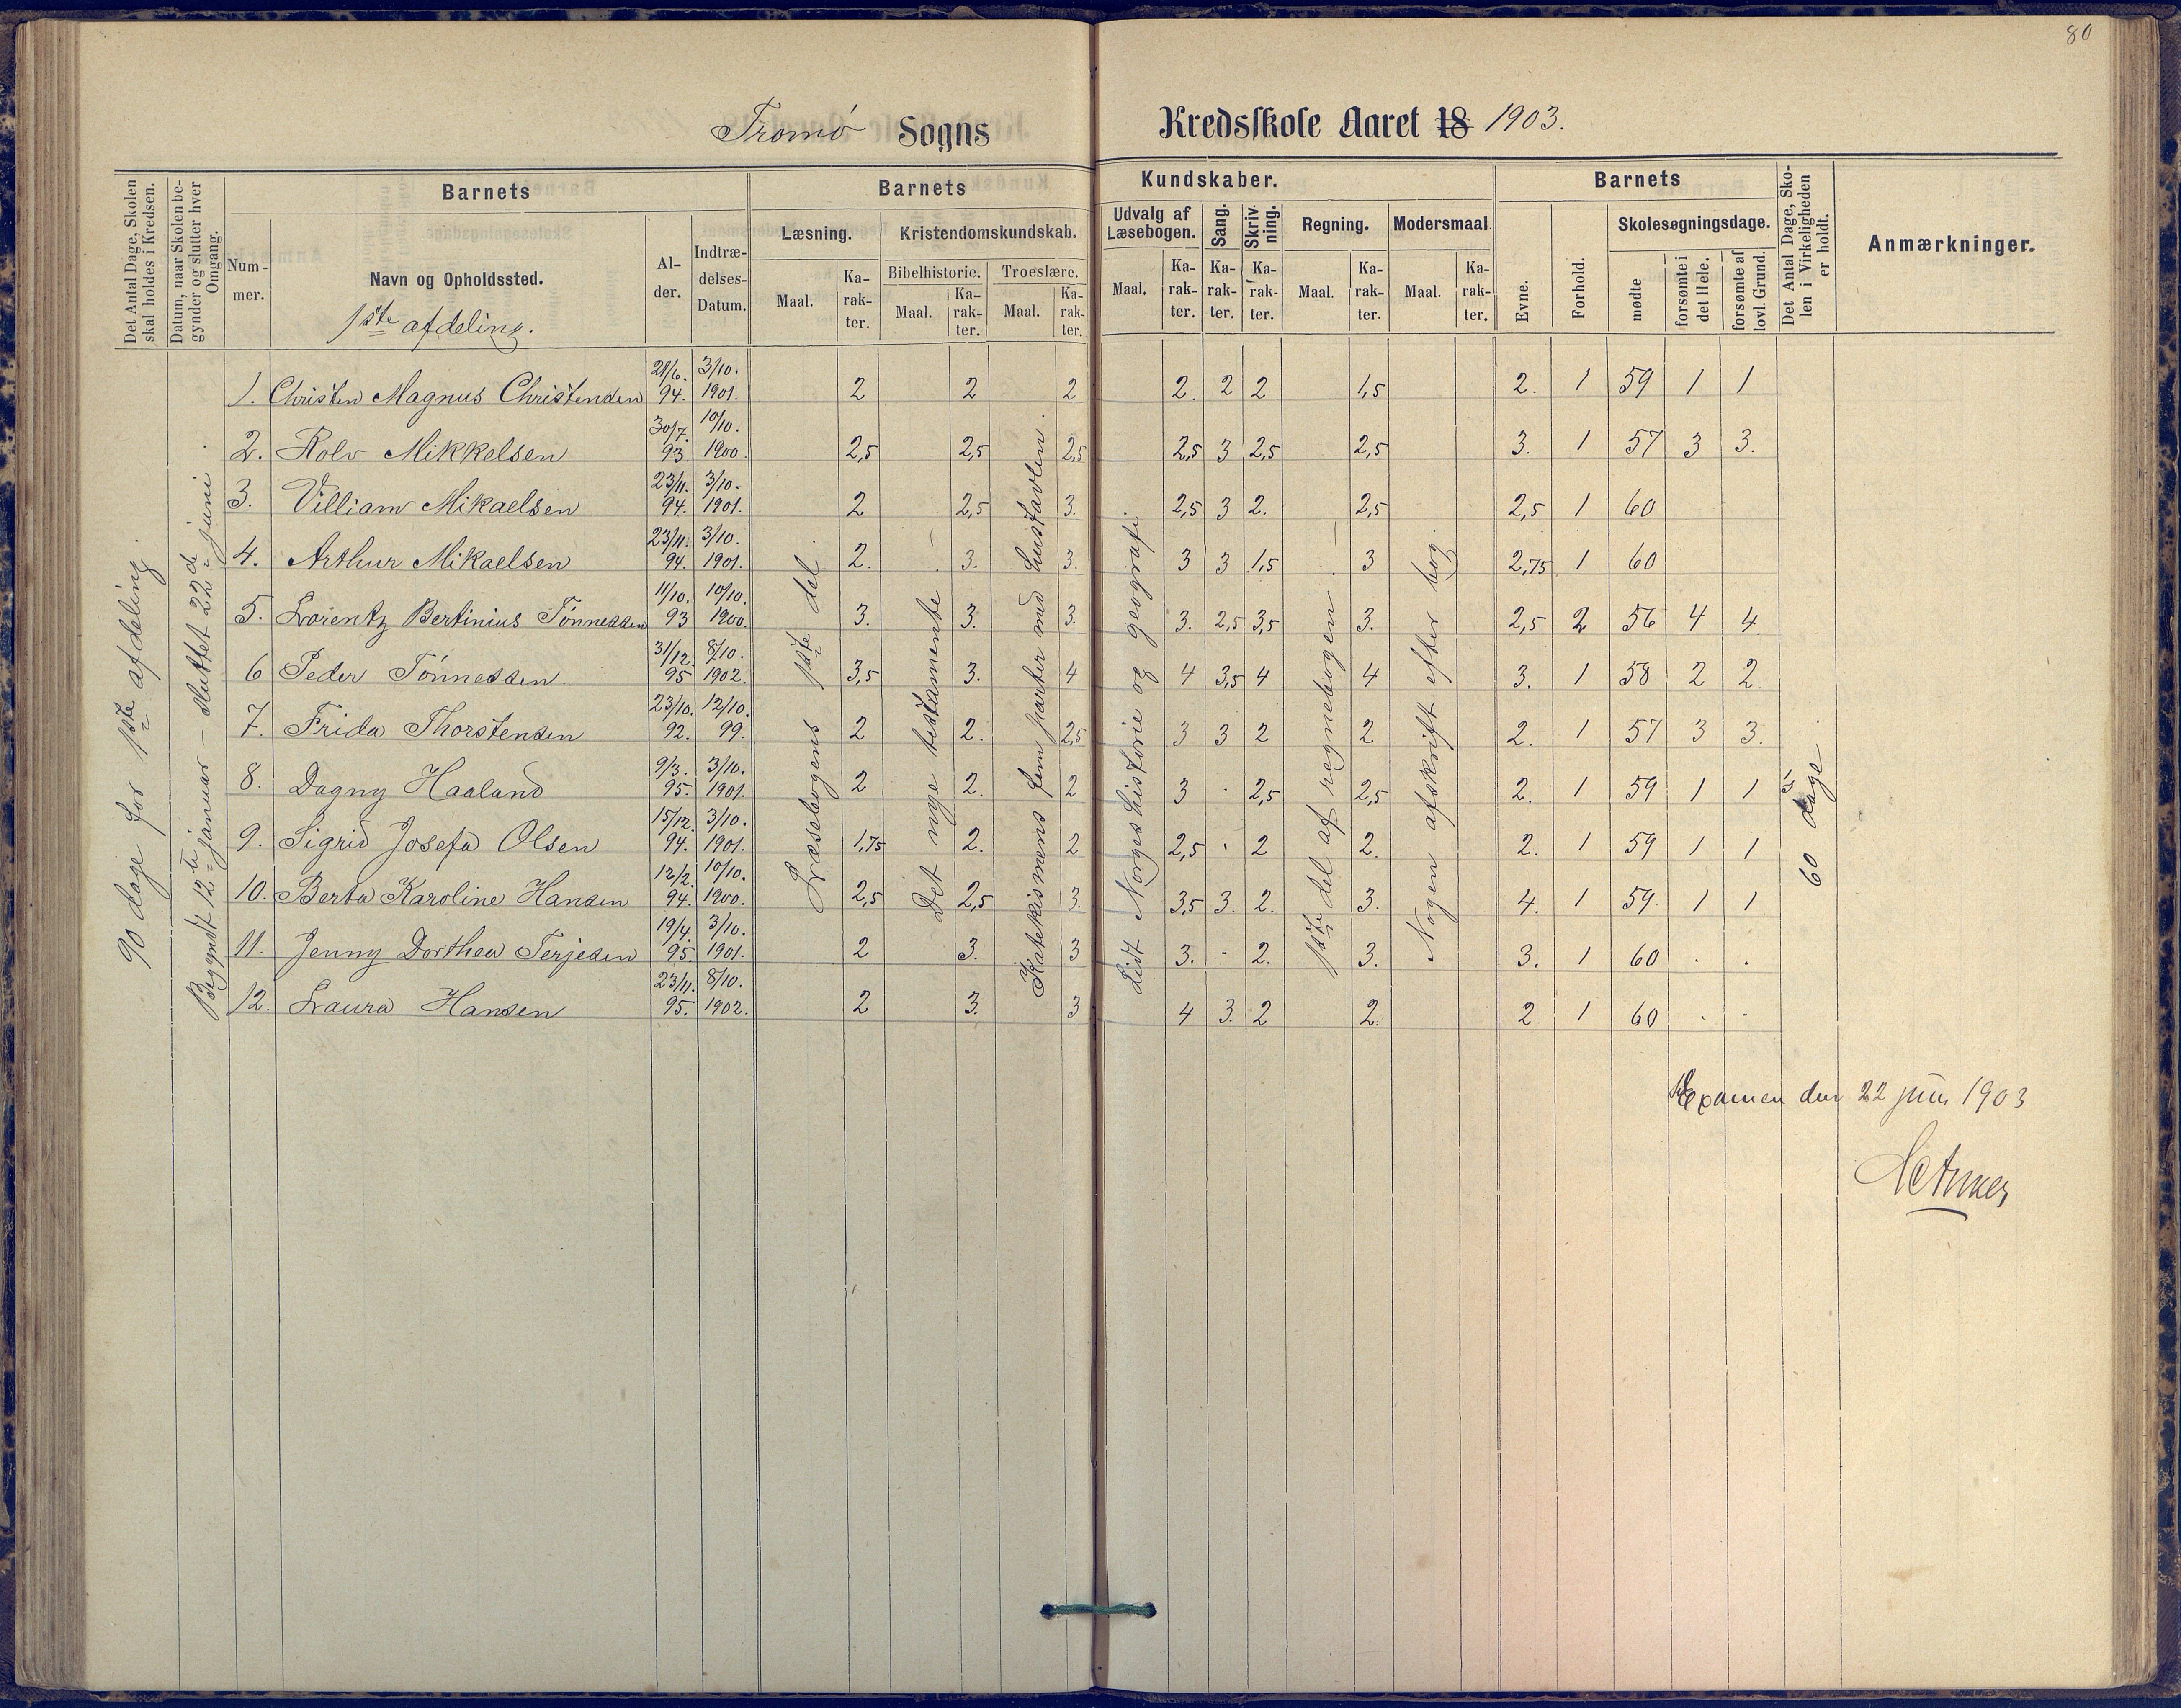 80
Tromø Sogns Kredsskole Aaret 18 1903.
Det Antal Dage, Skolen skal holdes i Kredsen.
Datum, naar Skolen begynder og slutter hver Omgang.
Barnets
Num-
mer.
Navn og Opholdssted.
1ste afdeling.
Al-
der.
Indtræ-
delses-
Datum.
Barnets Kundskaber.
Læsning.
Maal.
Ka-
rak-
ter.
Kristendomskundskab.
Bibelhistorie.
Maal.
Ka-
rak-
ter.
Troeslære.
Maal.
Ka-
rak-
ter.
Udvalg af
Læsebogen.
Maal.
Ka-
rak-
ter.
Sang.
Ka-
rak-
ter.
Skriv-
ning.
Ka-
rak-
ter.
Regning.
Maal.
Ka-
rak-
ter.
Modersmaal
Maal.
Ka-
rak-
ter.
Barnets
Evne.
Forhold.
Skolesøgningsdage.
mødte
forsømte i
det Hele.
forsømte af
lovl. Grund.
Det Antal Dage, Sko-
len i Virkeligheden
er holdt.
Anmærkninger.
90 dage for 1ste afdeling.
Begyndt 12te januar – sluttet 22de juni.
1. Christen Magnus Christensen 21/6. 94. 3/10. 1901. 2 2 2 2. 2 2 1,5 2. 1 59 1 1
2. Rolv Mikkelsen 30/7. 93. 10/10. 1900. 2,5 2,5 2,5 2,5 3 2,5 2,5 3. 1 57 3 3.
3. Villiam Mikaelsen 23/11. 94. 3/10. 1901. 2 2,5 3. 2,5 3 2. 2,5 2,5 1 60
4. Arthur Mikaelsen 23/11. 94. 3/10. 1901. 2. 3. 3. 3 3 1,5 3 2,75 1 60
5. Lorentz Bertinius Tønnessen 11/10. 93 10/10. 1900. 3. 3. 3. 3. 2,5 3,5 3. 2,5 2 56 4 4.
6 Peder Tønnessen 31/12. 95 8/10. 1902. 3,5 3. 4 4 3,5 4 4 3. 1 58 2 2.
7. Frida Thorstensen 23/10. 92. 12/10. 99. 2 2. 2,5 3 3 2 2 2. 1 57 3 3.
8. Dagny Haaland 9/3. 95. 3/10. 1901. 2 2. 2 3 · 2,5 2,5 2. 1 59 1 1
9. Sigrid Josefa Olsen 15/12. 94. 3/10. 1901. 1,75 2. 2 2,5 · 2 2. 2. 1 59 1 1
10. Berta Karoline Hansen 12/2. 94. 10/10. 1900. 2,5 2,5 3. 3,5 3. 2. 3. 4. 1 59. 1 1
11. Jenny Dorthea Terjesen 19/4. 95. 3/10. 1901. 2 3. 3 3. - 2. 3. 3. 1 60 . .
12. Laura Hansen 23/11. 95. 8/10. 1902. 2 3. 3 4 3. 2 2. 2 1 60 . .
Læsebogens 1ste del.
Det nye testamente
Katekismens fem parter med hustavlen.
Lidt Norgeshistorie og geografi.
1ste del af regnebogen
Nogen afskrift efter bog.
60 dage.
Examen den 22 juni 1903